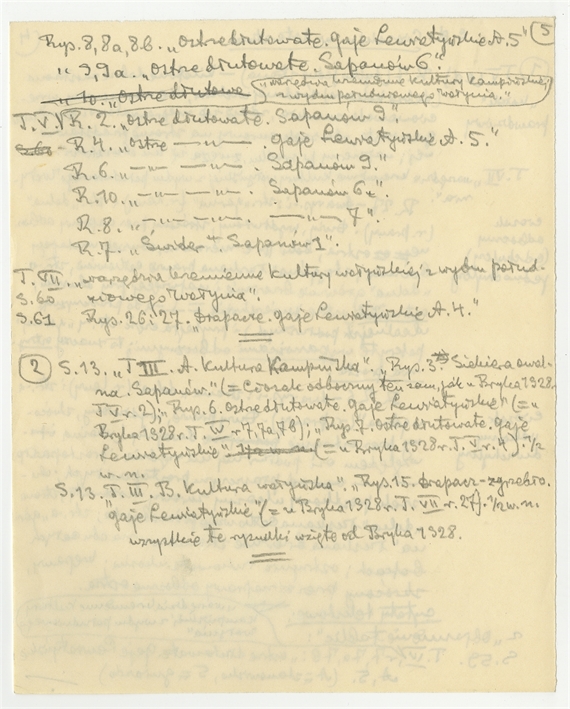 5
Rys. 8, 8a, 8b. „Ostrze dłutowate. Gaje Lewiatyńskie A. 5"
" 9, 9a. „Ostrze dłutowate. Sapanów 6".
" 10. „Ostrze dłutowa
„narzędzia krzemienne kultury kampinskiej
z wydm południowego Wołynia."
T. V. R. 2. „ostrze dłutowate. Sapanów 9".
S. 60 - R. 4. „ostrze —"— . gaje Lewiatyńskie A. 5."
R. 6. —"— —"— Sapanów 9.
R. 10. —"— —"— . Sapanów 6".
R. 8. —"— —"— . —"— 7".
R. 7. „Świder". Sapanów 1".
T. VII. „narzędzia krzemienne kultury wołyńskiej z wydm połud-
S. 60 niowego Wołynia".
S. 61 Rys. 26 i 27. „Drapacze. gaje Lewiatyńskie A. 4."
2 S. 13. „T III. A. Kultura Kampinska". „Rys. 3. Siekiera owal-
na. Sapanów." (= Ciosak odboczny ten sam, jak u Bryka 1928
T V r. 2); „Rys. 6. Ostrze dłutowate. gaje Lewiatyńskie" (= u
Bryka 1928 r. T. IV r 7, 7a, 7b); „Rys. 7. Ostrze dłutowate. gaje
Lewiatyńskie" (= u Bryka 1928 r. T. V r. 4). 1/2
w. n.
S. 13. T. III. B. Kultura wołyńska". „Rys. 15. Drapacz-zgrzebło.
gaje Lewiatyńskie" (= u Bryka 1928 r. T. VII r. 27). 1/2 w. n.
wszystkie te rysunki wzięte od Bryka 1928.